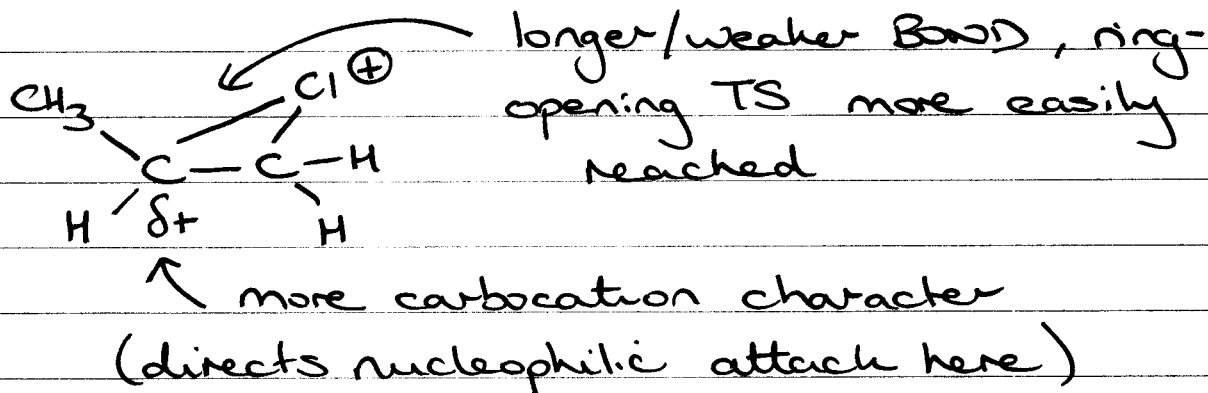 longer/weaker BOND, ring-
opening TS more easily
reached
CH3 Cl⊕
C—C—H
H δ+ H
more carbocation character
(directs nucleophilic attack here)